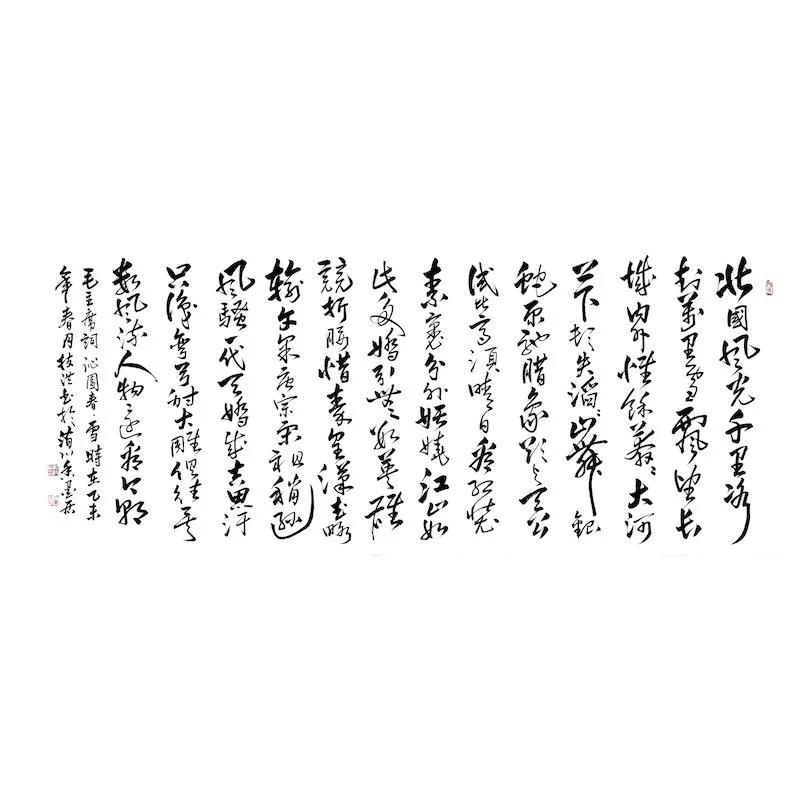 北國風光千里冰
封萬里雪飄望長
城內外惟餘莽々大河
上下頓失滔々山舞銀
蛇原馳腊象欲與天公
試比高須晴日看紅裝
素裹分外妖嬈江山如
此多嬌引無數英雄
競折腰惜秦皇漢武略
輸文采唐宗宋祖稍遜
風騷一代天嬌成吉思汗
只識彎弓射大雕俱往矣
數風流人物還看今朝
毛主席詞沁園春·雪時在乙未
年春月桂洪書於